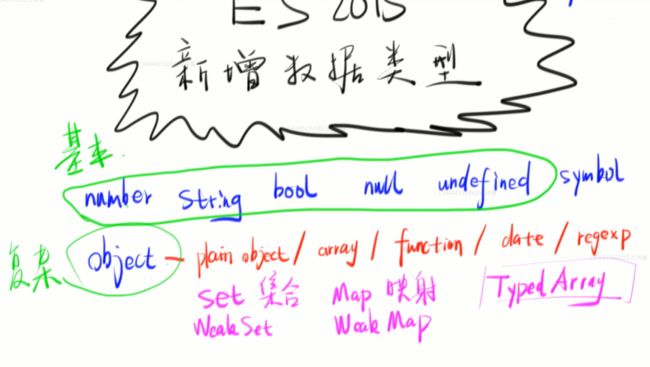 ES 2015
新增数据类型
基本.
number string bool null undefined symbol
复杂 object - plain object / array / function / date / regexp
set 集合 Map 映射 TypedArray
WeakSet WeakMap